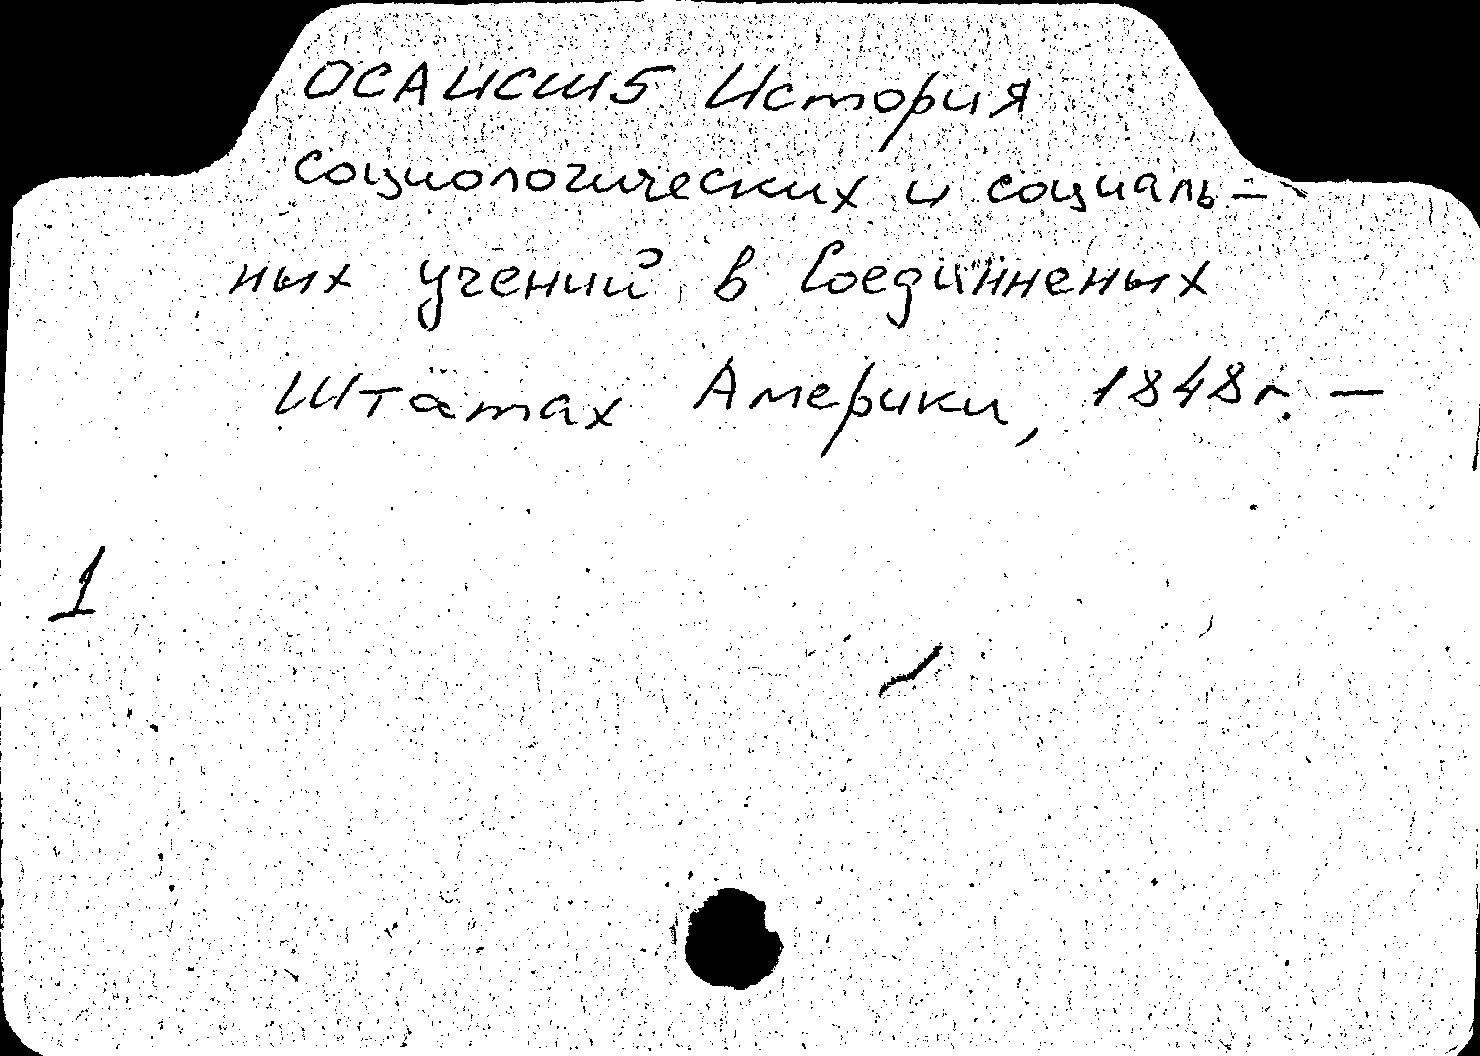 ОСАИСШ5 История
социологических и социаль-
ных учений в Соединненых
Штатах Америки, 1848 г. —
1